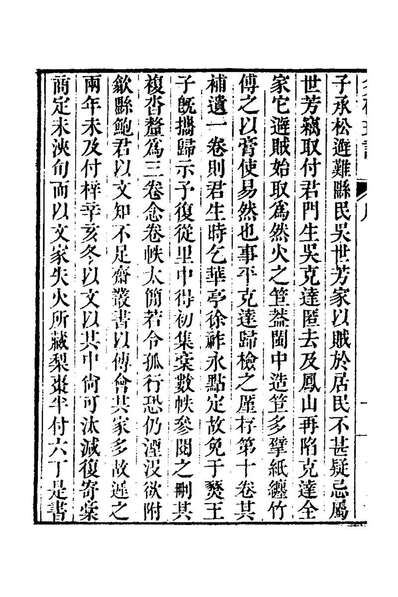 子承松避難縣民吳世芳家以賊於居民不甚疑忌屬
世芳竊取付君門生吳克達匿去及鳳山再陷克達全
家它避賊始取為然火之笪葢閩中造笪多擘紙纏竹
傅之以膏使易然也事平克達歸檢之厪存第十卷其
補遺一卷則君生時乞華亭徐祚永點定故免于燹王
子旣攜歸示予復從里中得初集稾數帙參閱之刪其
複沓釐為三卷念卷帙太簡若令孤行恐仍湮沒欲附
歙縣鮑君以文知不足齋叢書以傳會其家多故遲之
兩年未及付梓辛亥冬以文以其中尙可汰減復寄稾
商定未浹旬而以文家失火所藏梨棗半付六丁是書